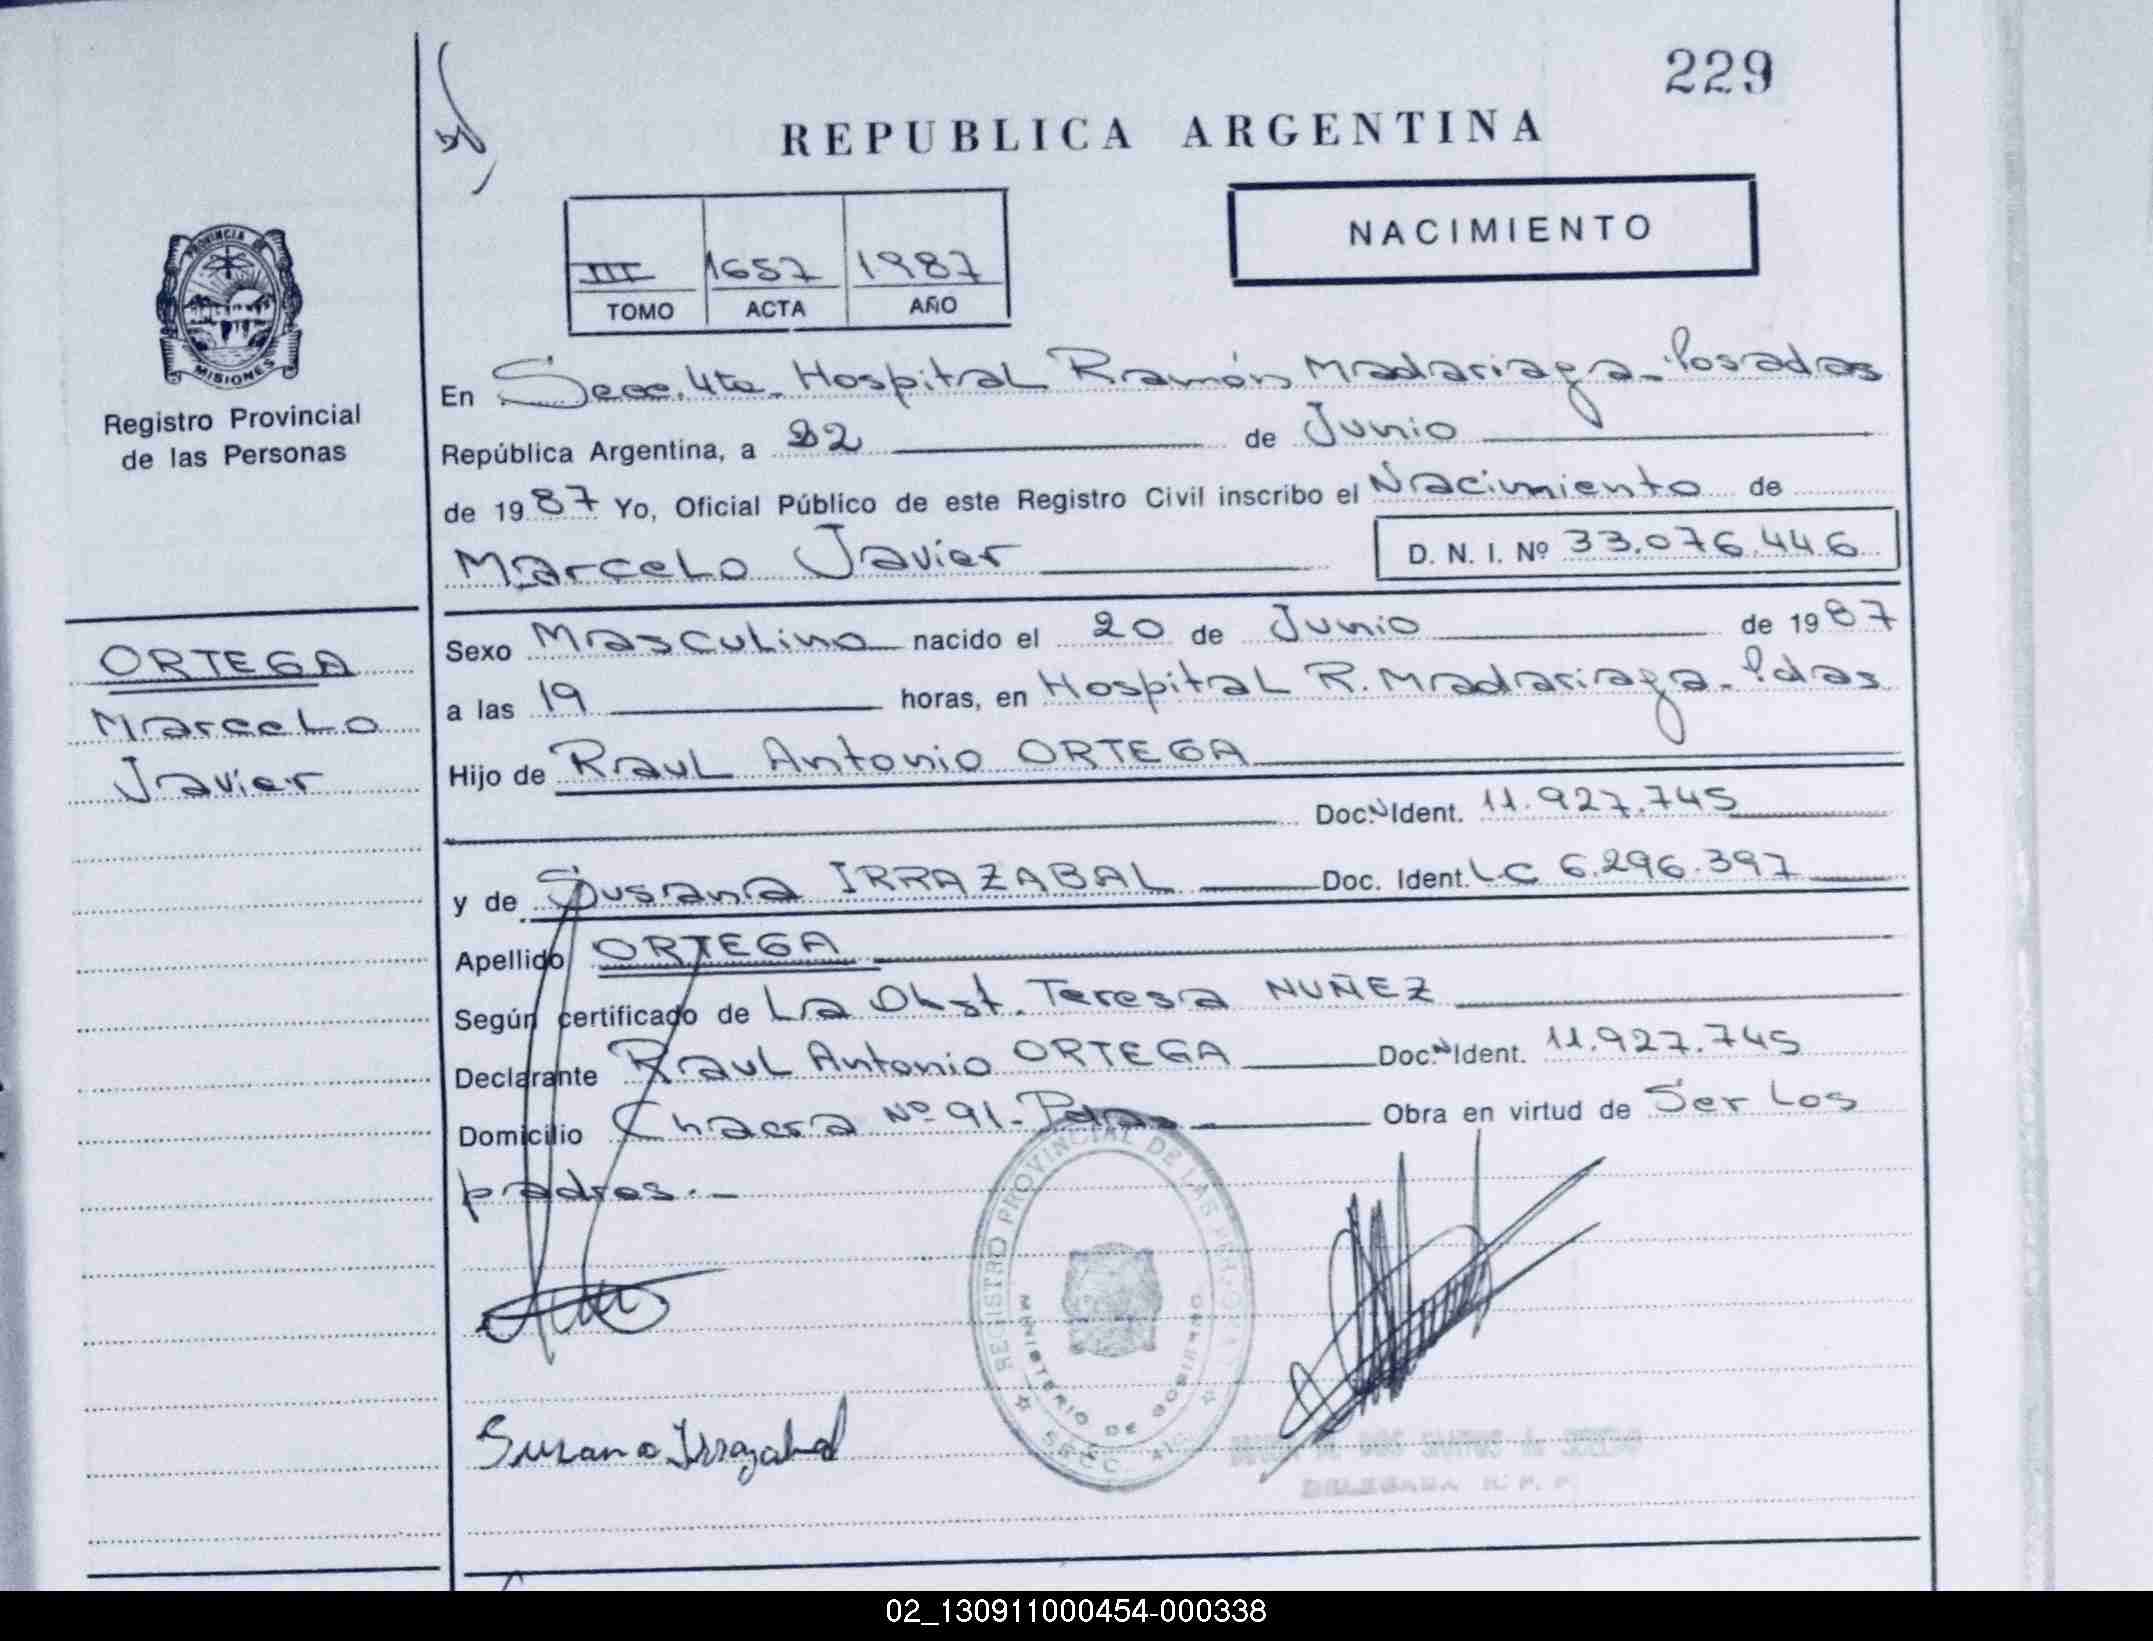 229
REPUBLICA ARGENTINA
NACIMIENTO
III 1657 1987
TOMO ACTA AÑO
PROVINCIA DE
MISIONES
Registro Provincial
de las Personas
En Secc. 4ta. Hospital Ramón Madariaga - Posadas
República Argentina, a 22 de Junio
de 1987 Yo, Oficial Público de este Registro Civil inscribo el Nacimiento de
Marcelo Javier D. N. I. Nº 33.076.446
ORTEGA
Marcelo
Javier
Sexo Masculino nacido el 20 de Junio de 1987
a las 19 horas, en Hospital R. Madariaga - Pdas
Hijo de Raul Antonio ORTEGA
Doc. Ident. 11.927.745
y de Susana IRRAZABAL Doc. Ident. LC 6.296.397
Apellido ORTEGA
Según certificado de La Obst. Teresa NUÑEZ
Declarante Raul Antonio ORTEGA Doc. Ident. 11.927.745
Domicilio Chacra Nº 91 - Pdas Obra en virtud de Ser Los
padres. -
REGISTRO PROVINCIAL DE LAS
MINISTERIO DE GOBIERNO
SECC.
Susana Irrazabal
DELEGADA R. P. P.
02_130911000454-000338